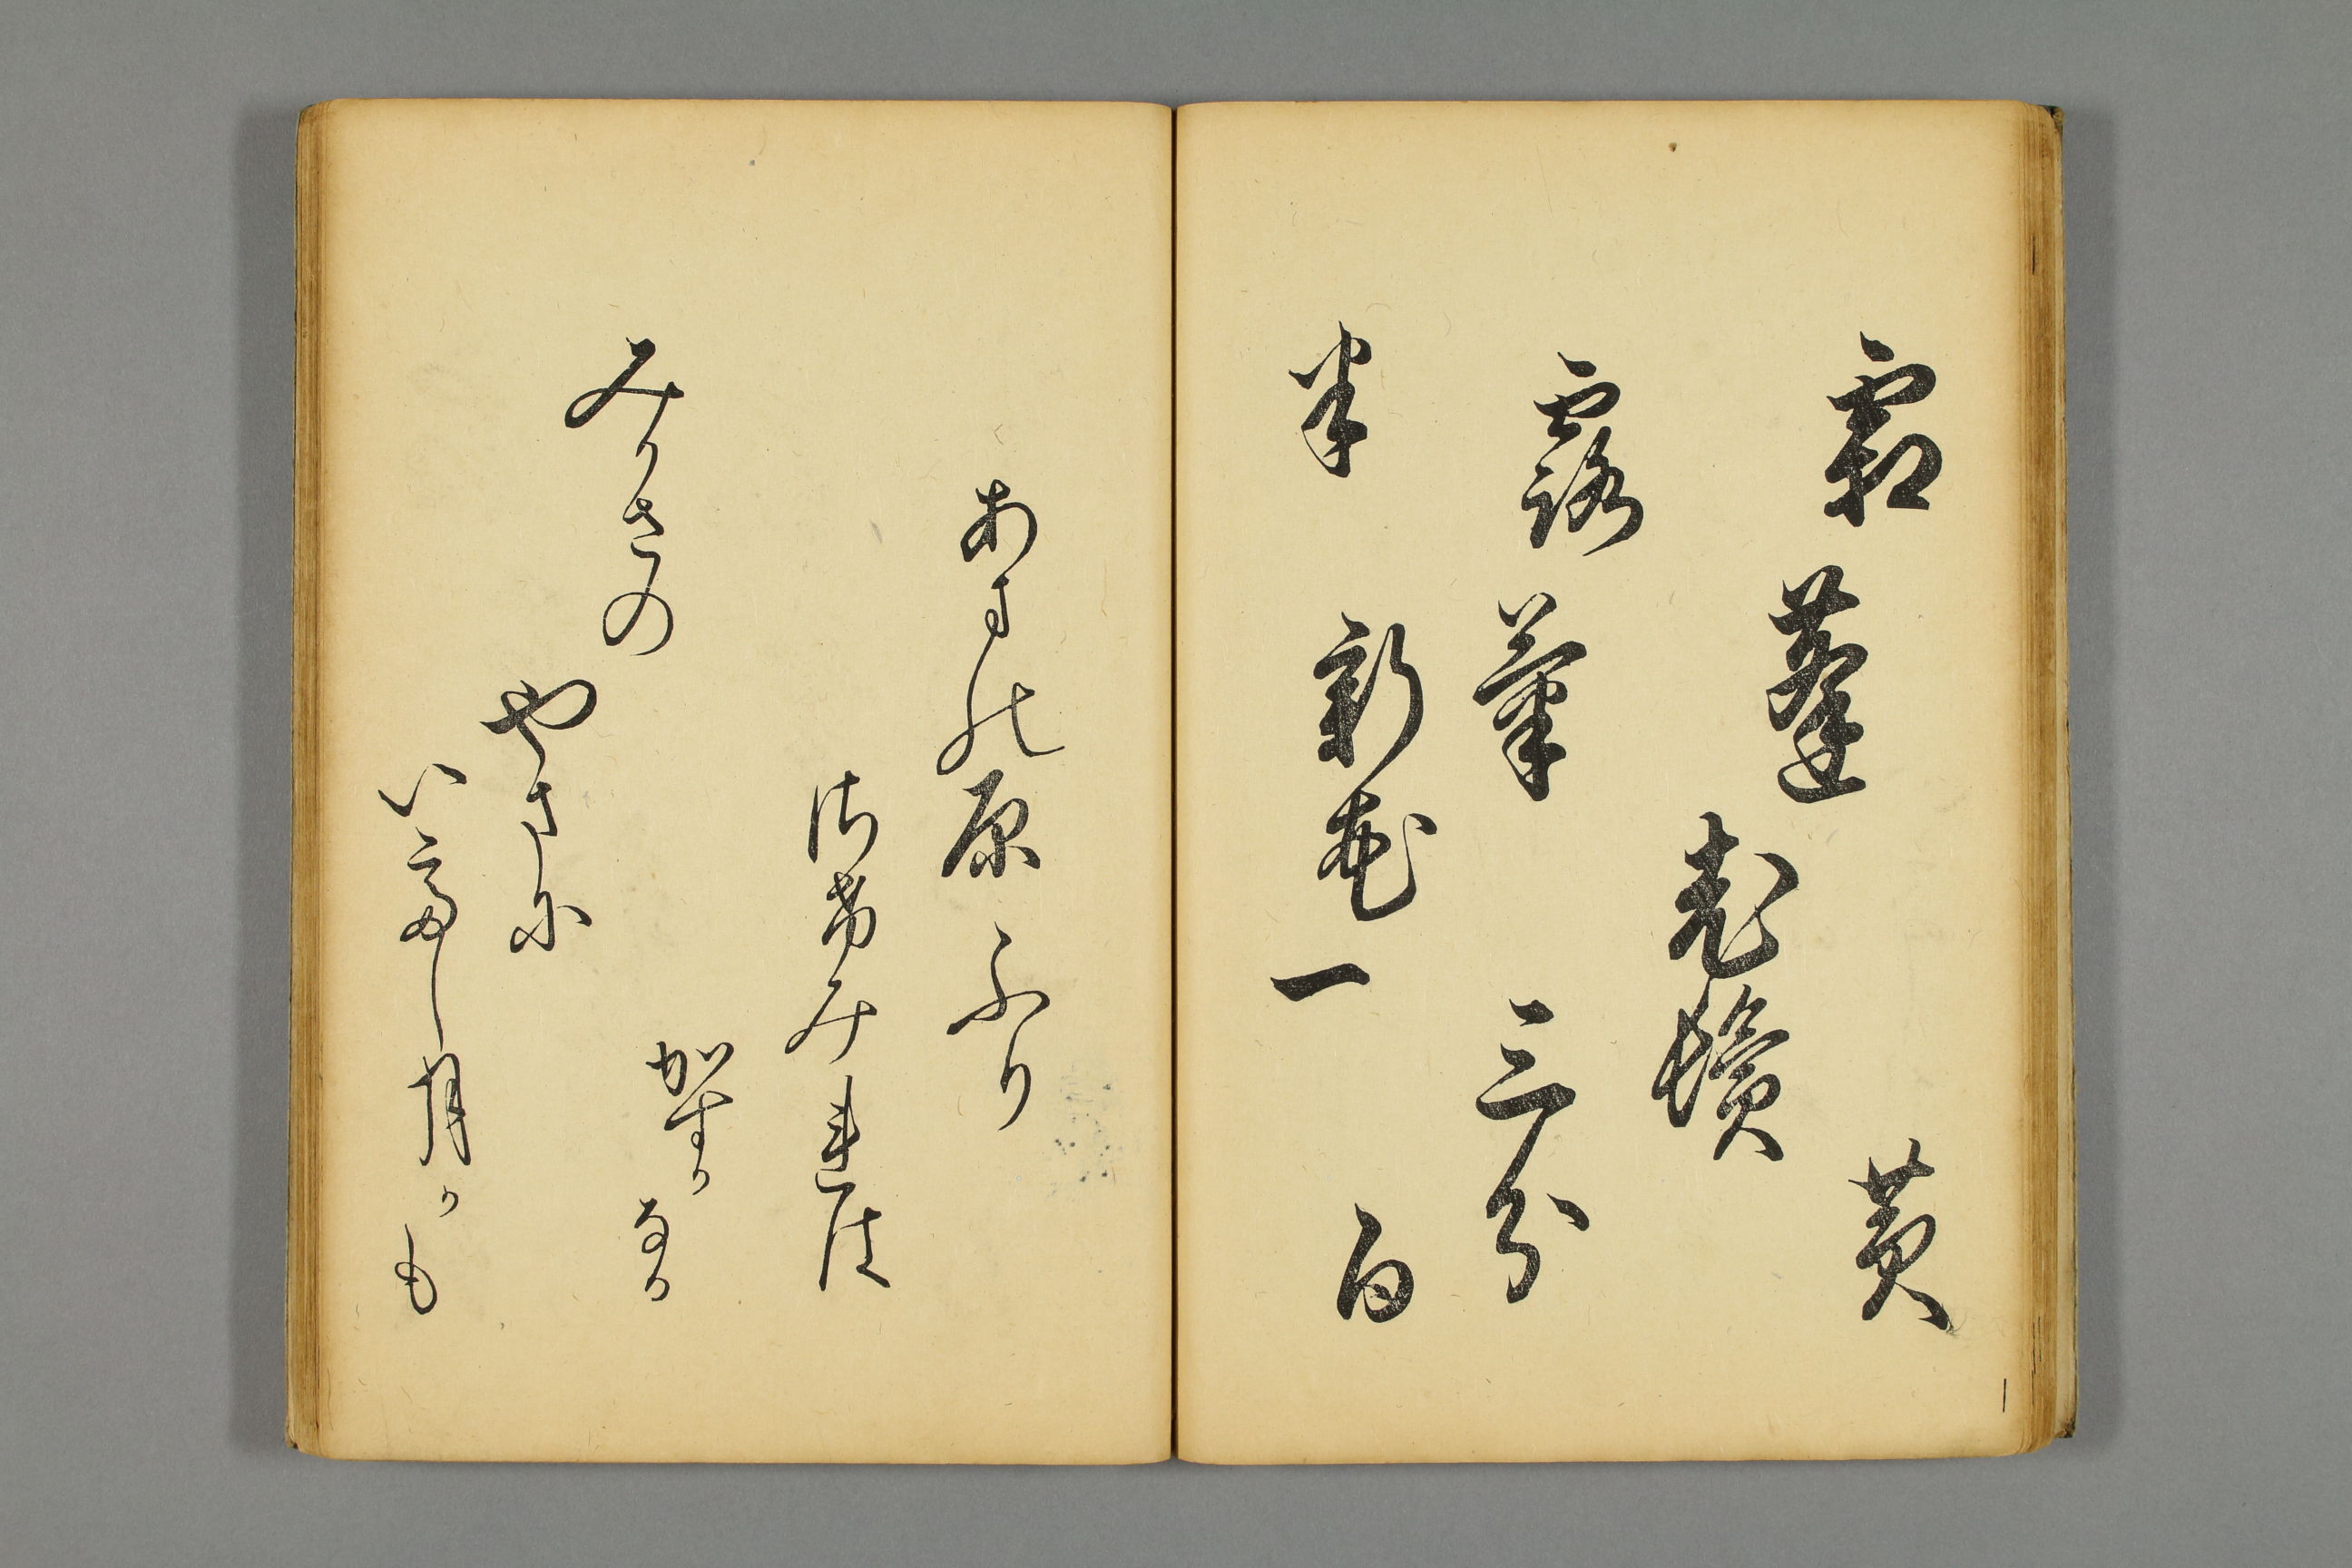 霜蓬
老鬢
三分
白
露菊
新花一
半
黄
あまの原ふり
さけみれは
かすかなる
みかさの
やまに
いてし月かも